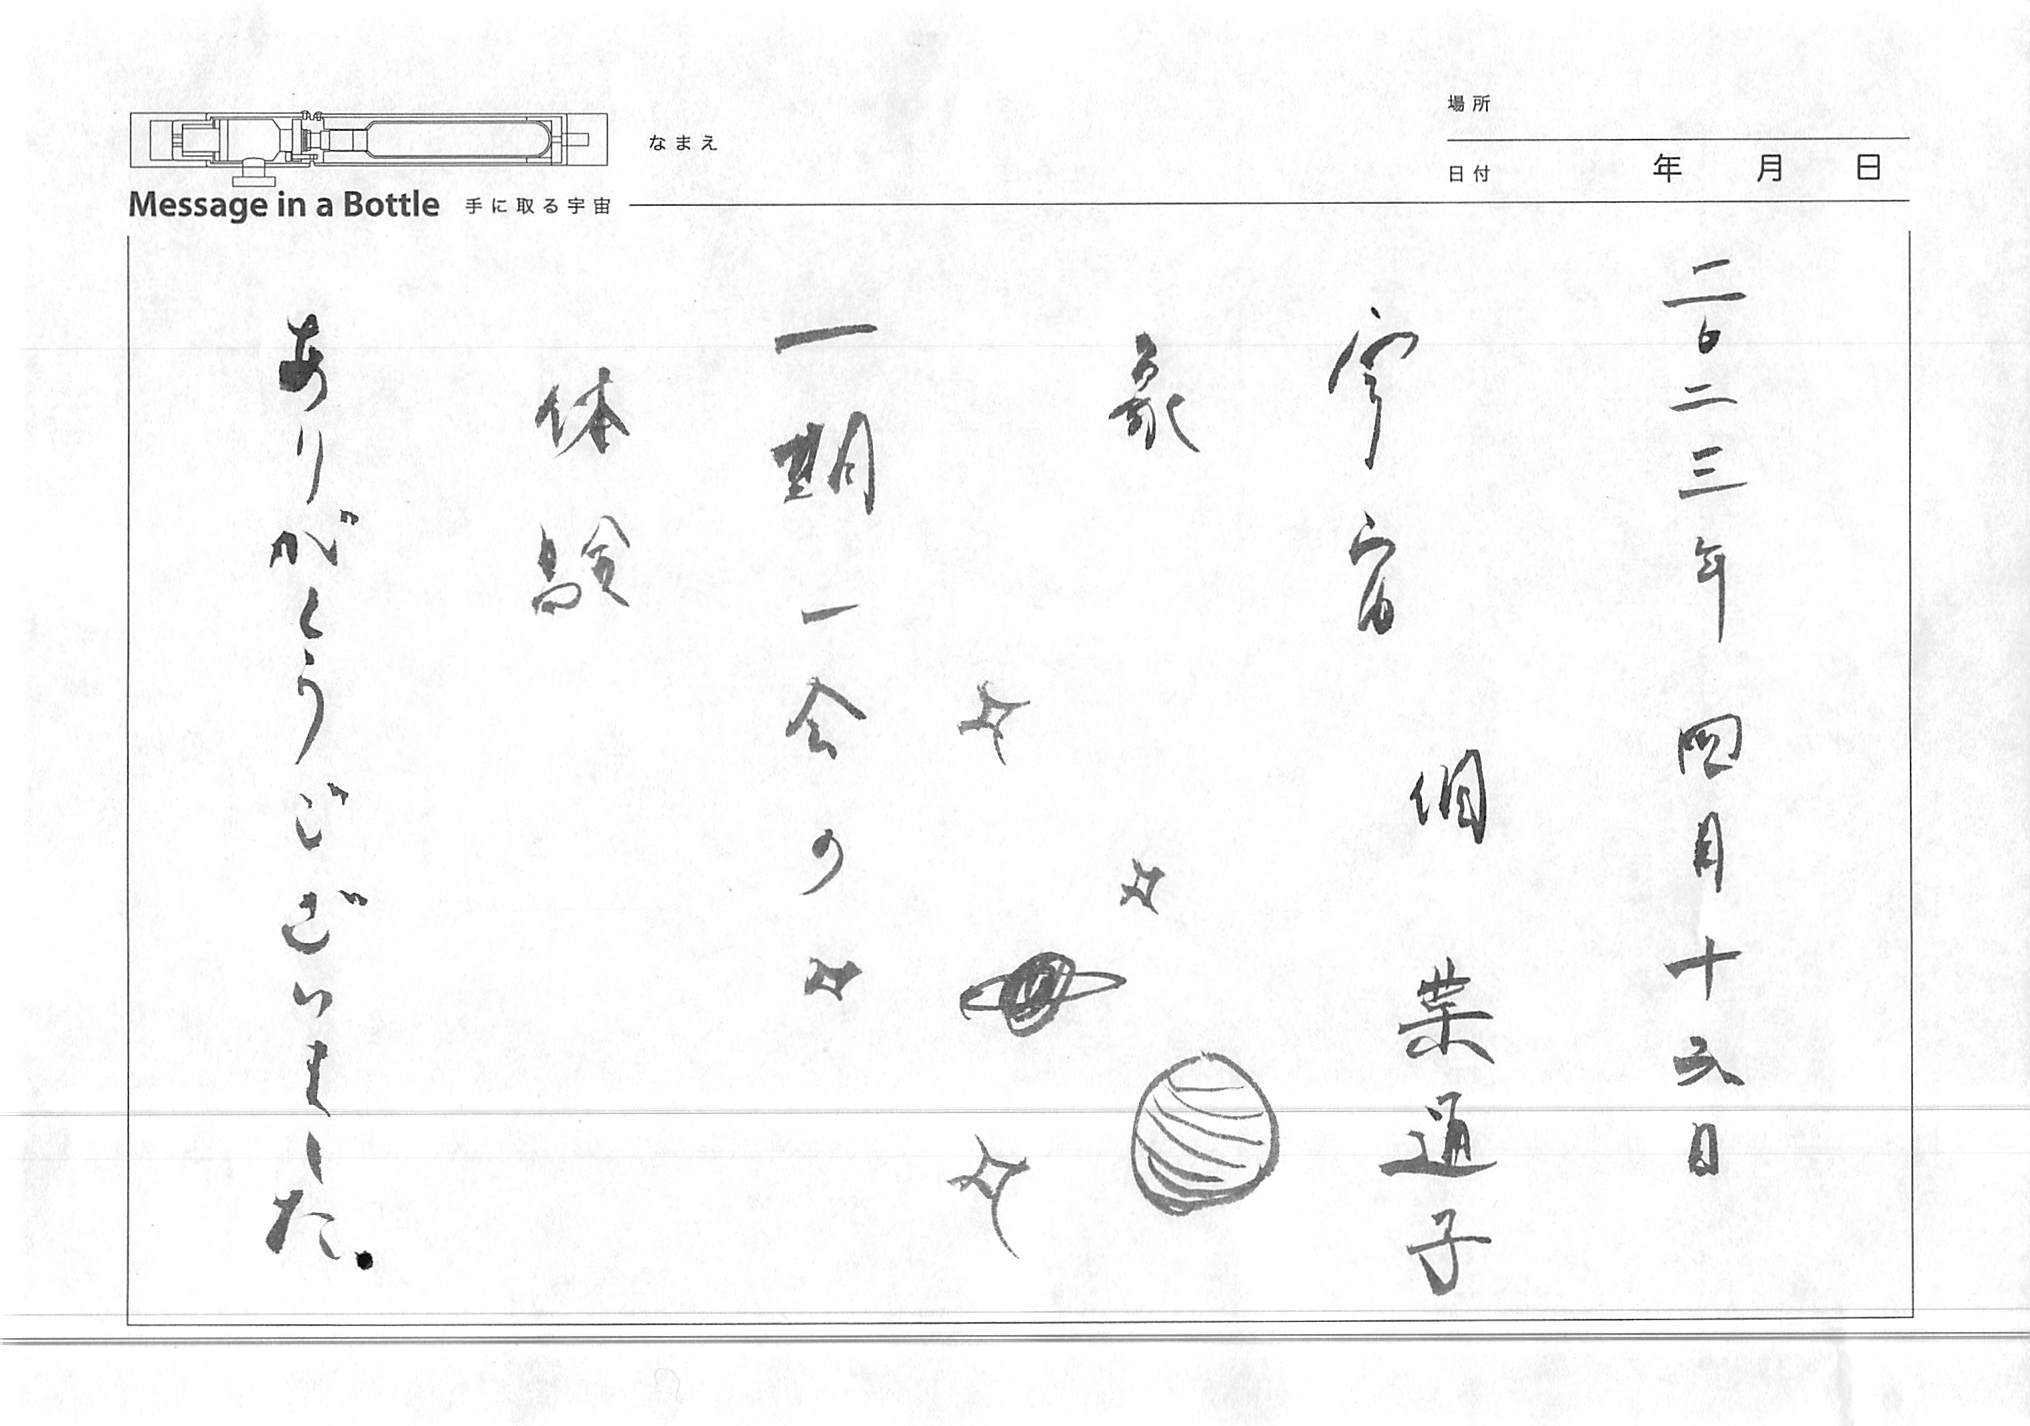 場所
なまえ
日付 年 月 日
Message in a Bottle 手に取る宇宙
二〇二三年 四月十 日
宇宙
通子
象
一期一会の
体験
ありがとうございました.